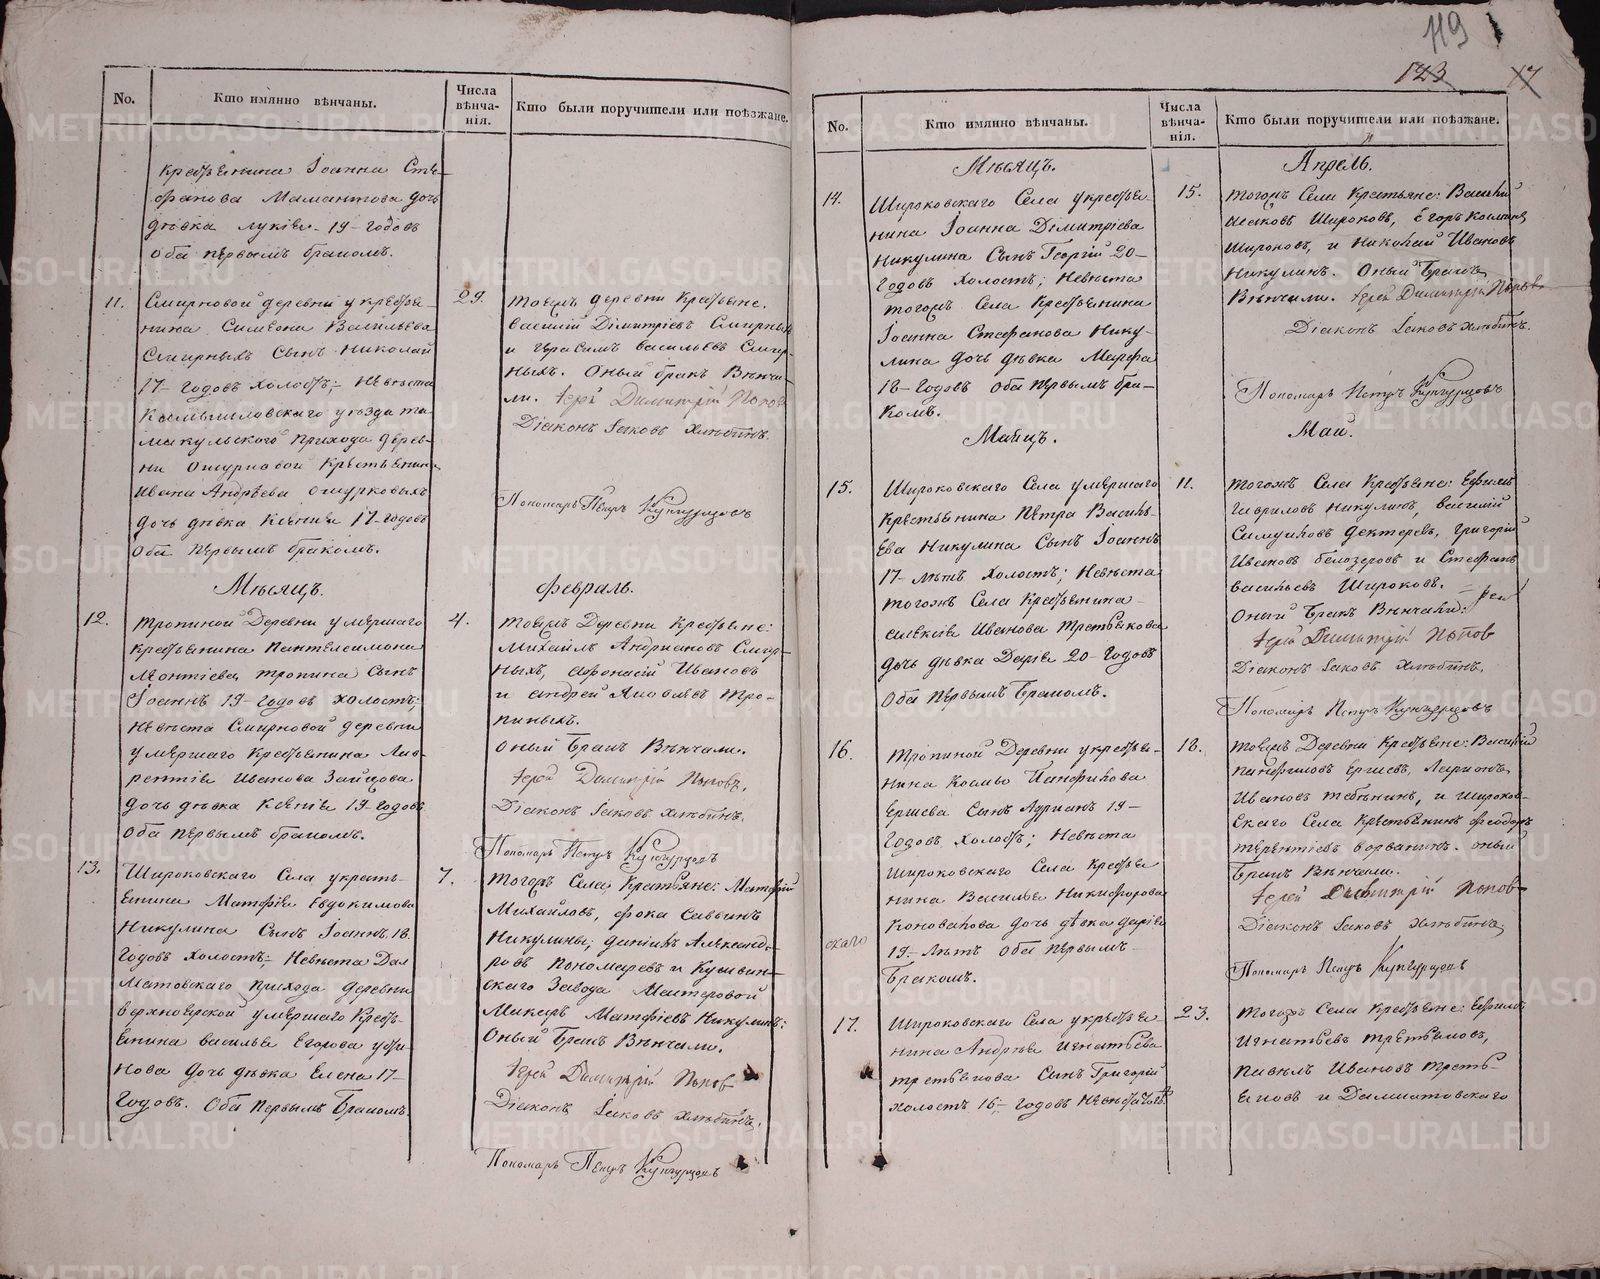 119
123
17
No.
Кто имянно вѣнчаны.
Числа вѣнча-нія.
Кто были поручители или поѣзжане.
крестьянина Іоанна Сте-
фанова Мамантова дочь
дѣвка 19-годовъ
оба первымъ бракомъ.
11.
Смирновой деревни у кресть-
нина Симеона Васильева
Смирныхъ Сынъ Николай
17-годовъ холостъ; невѣста
Камышловскаго уѣзда та-
макульскаго прихода дерев-
ни Ошурковой Крестьянина
Ивана Андрѣева Ошурковыхъ
дочь дѣвка Ксенія 17-годовъ
Оба первымъ бракомъ.
29.
тоежъ деревни Крестьяне.
Василій Дімитріевъ Смирныхъ
и Герасимъ Васильевъ Смир-
ныхъ. Оный бракъ Вѣнча-
ли. Іерей Димитрій Попов
Діаконъ Іаковъ Хлѣбинъ.
Пономарь Петръ Кунгурцовъ
Мѣсяцъ.
Февраль.
12.
Тропиной Деревни умершаго
крестьянина Пантелеимона
Леонтіева тропина Сынъ
Іоаннъ 19-годовъ холостъ;
невѣста Смирновой деревни
умершаго Крестьянина Лав-
рентія Иванова Зайцова
дочь дѣвка Ксенія 19-годовъ
Оба первымъ бракомъ.
4.
тоежъ Деревни Крестьяне:
Михайлъ Андріановъ Смир-
ныхъ, Афонасій Ивановъ
и Андрей Яковлевъ Тро-
пиныхъ.
Оный Бракъ Вѣнчали.
Іерей Димитрій Поповъ.
Діаконъ Іаковъ Хлѣбинъ.
Пономарь Петръ Кунгурцовъ
13.
Широковскаго Села у кресть-
янина Матфія Евдокимова
Никулина Сынъ Іоаннъ 18.
Годовъ Холостъ; Невѣста Дал
матовскаго прихода деревни
верхоярской умершаго Кресть-
янина Василья Егорова
дочь дѣвка Елена 17-
Годовъ. Оба первымъ Бракомъ.
7.
тогожъ Села Крестьяне: Матфій
Михайловъ, Фока Савинъ
Никулины, Даніилъ Александ-
ровъ Пономаревъ и Кушвин-
скаго Завода Мастеровой
Макаръ Матфіевъ Никулинъ:
Оный Бракъ Вѣнчали.
Іерей Димитрій Попов
Діаконъ Іаковъ Хлѣбинъ.
Пономарь Петръ Кунгурцовъ
No.
Кто имянно вѣнчаны.
Числа вѣнча-нія.
Кто были поручители или поѣзжане.
Мѣсяцъ.
Апрель.
14.
Широковскаго Села у крестья
нина Іоанна Дімитріева
Никулина Сынъ Георгій 20-
Годовъ холостъ; Невѣста
тогожъ Села Крестьянина
Іоанна Стефанова Нику-
лина дочь дѣвка Марфа
18-Годовъ Оба первымъ бра-
комъ.
15.
тогожъ Села Крестьяне: Василій
Исаковъ Широковъ, Егоръ Косминъ
Широковъ, и Николай Ивановъ
Никулинъ. Оный Бракъ
Вѣнчали. Іерей Димитрій Поповъ
Діаконъ Іаковъ Хлѣбинъ.
Пономарь Петръ Кунгурцовъ
Маій.
15.
Широковскаго Села умершаго
крестьянина Петра Василь-
ева Никулина Сынъ Іоаннъ
17-лѣтъ холостъ; Невѣста
тогожъ Села Крестьянина
Алексія Иванова Третьякова
дочь дѣвка Дарія 20-Годовъ
Оба первымъ Бракомъ.
11.
тогожъ Села Крестьяне: Ефимъ
Гавриловъ Никулинъ, Василій
Дектеревъ, Григорій
Ивановъ Белозеровъ и Стефанъ
Васильевъ Широковъ.
Оный Бракъ Вѣнчали:
Іерей Димитрій Попов
Діаконъ Іаковъ Хлѣбинъ.
Пономарь Петръ Кунгурцовъ
16.
Тропиной Деревни у крестья-
нина Космы Панфилова
Ершева Сынъ 19-
Годовъ холостъ; Невѣста
Широковскаго Села Крестья
нина Василья Никифорова
Коновалова дочь дѣвка Дарія
19-Лѣтъ Оба первымъ
Бракомъ.
18.
тоежъ Деревни Крестьяне: Василій
Панфиловъ Ершевъ, Ларіонъ
Ивановъ и Широков-
скаго Села Крестьянинъ Феодоръ
Терентіевъ оный
Бракъ Вѣнчали.
Іерей Димитрій Попов
Діаконъ Іаковъ Хлѣбинъ
Пономарь Петръ Кунгурцовъ
17.
Широковскаго Села у крестья
нина Андрѣя Игнатьева
третьякова Сынъ Григорій
холостъ 16-годовъ Невѣста
23.
тогожъ Села Крестьяне: Ефимъ
Игнатьевъ третьяковъ,
Павелъ Ивановъ треть-
яковъ и Далматовскаго